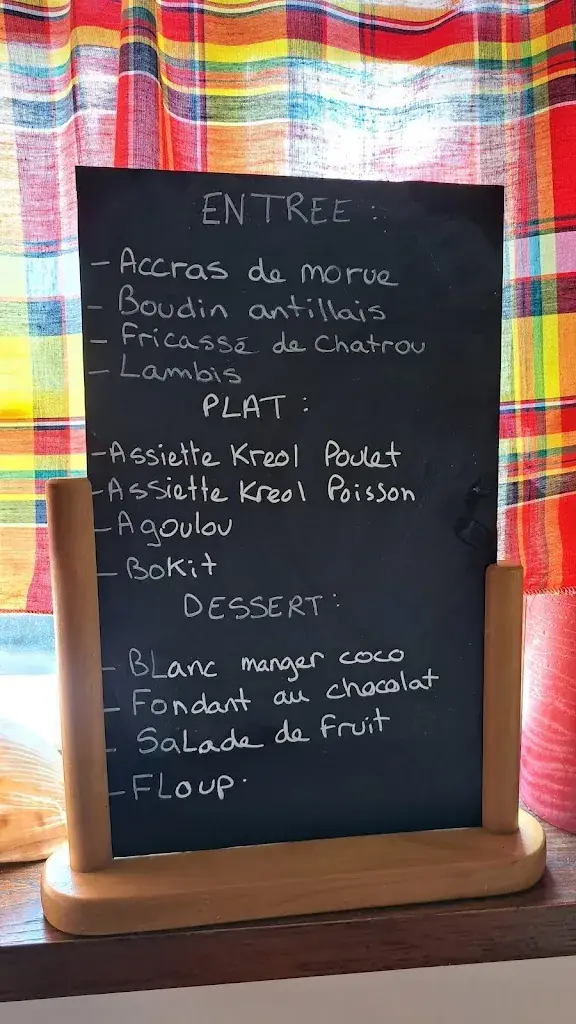 ENTREE :
- Accras de morue
- Boudin antillais
- Fricassé de Chatrou
- Lambis
PLAT :
- Assiette Kreol Poulet
- Assiette Kreol Poisson
- Agoulou
- Bokit
DESSERT :
- Blanc manger coco
- Fondant au chocolat
- Salade de fruit
- Floup.